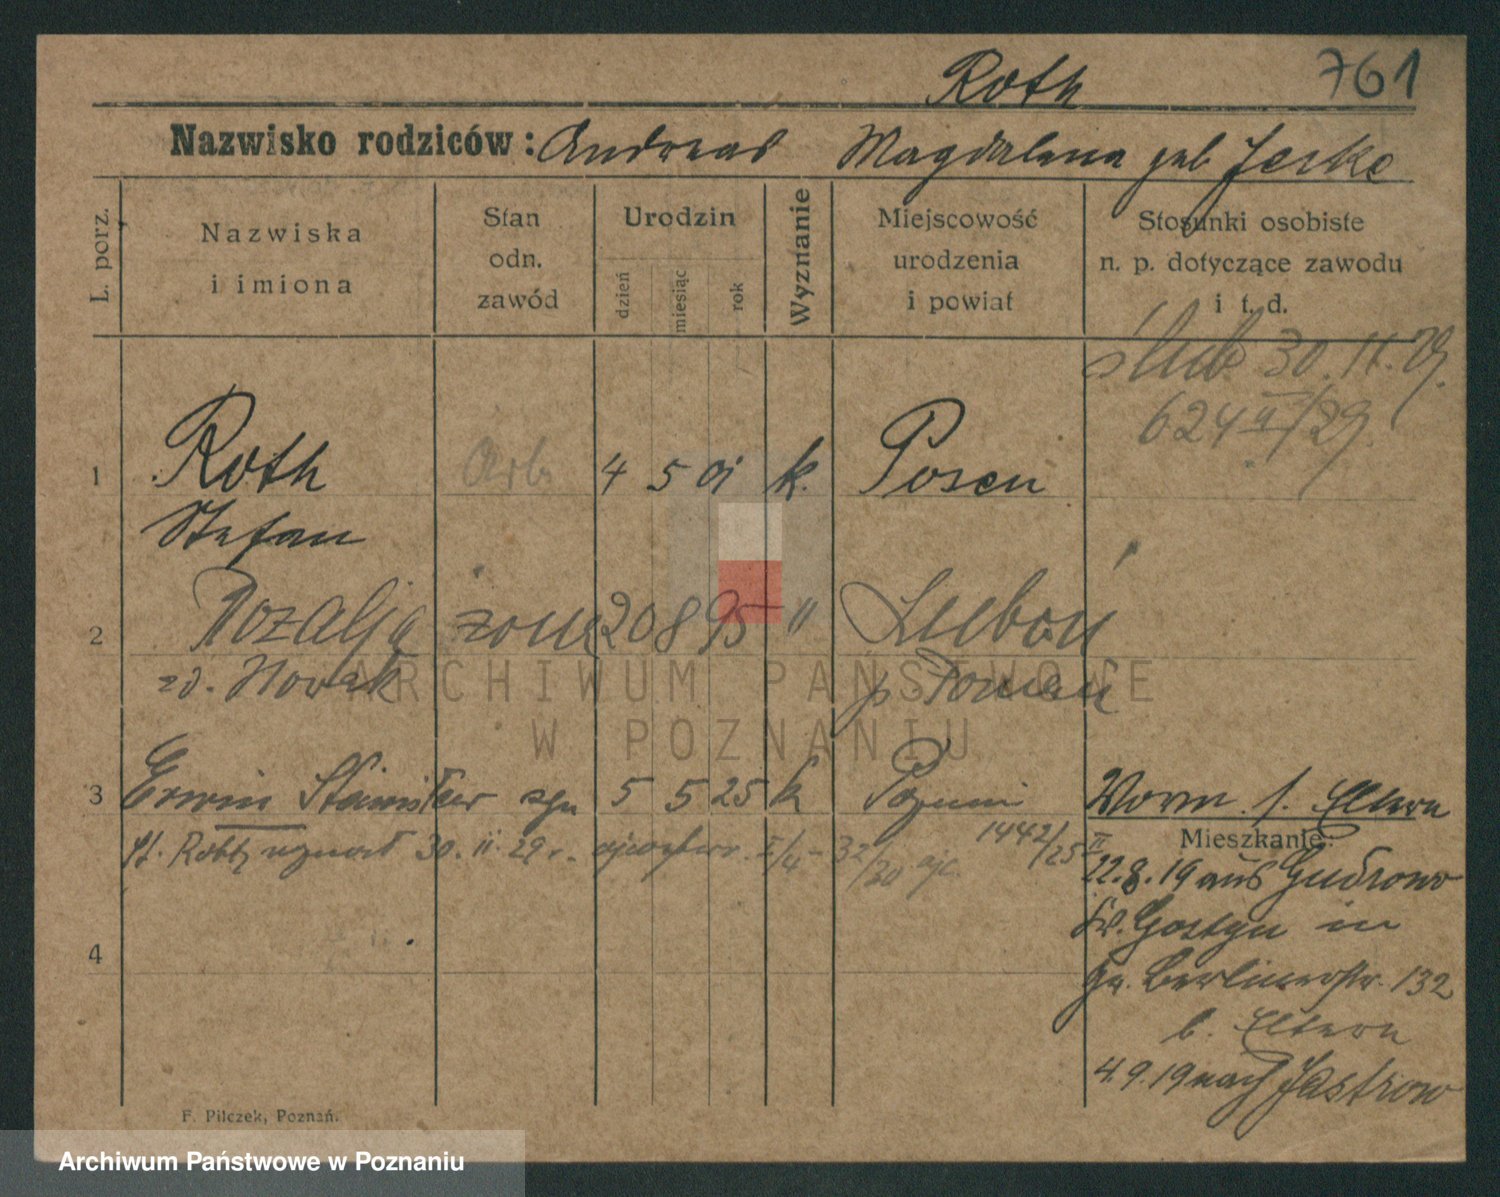 Roth 761
Nazwisko rodziców: Andreas Magdalena geb Jeske
L. porz.
Nazwiska
i imiona
Stan
odn.
zawód
Urodzin
dzień
miesiąc
rok
Wyznanie
Miejscowość
urodzenia
i powiat
Stosunki osobiste
n. p. dotyczące zawodu
i t. d.
ślub 30.11.29.
624 II/29.
1 Roth Arb. 4 5 01 k. Posen
Stefan
2 Rozalja żona 20 8 95 " Luboń
zd. Nowak p. Poznań
3 Erwin Stanisław syn 5 5 25 k Poznań Vorm. s. Eltern
1442/25 II
St. Roth uznał 30.11.29r. ojcostwo 32/30
Mieszkanie:
22.8.19 aus Gudrowo
Kr. Gostyn in
Berlinerstr. 132
4 b. Eltern
4.9.19 nach Jastrow
F. Pilczek, Poznań.
ARCHIWUM PAŃSTWOWE
W POZNANIU
Archiwum Państwowe w Poznaniu